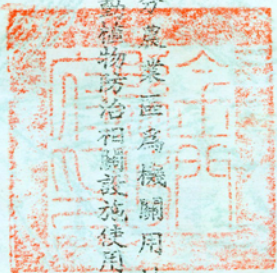 分農業區為機關用
動植物防治相關設施使用
金門